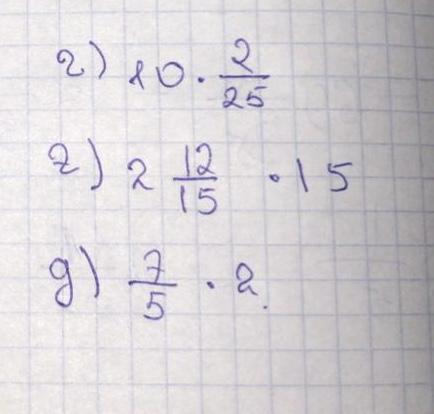 г) 10 · 2/25
г) 2 12/15 · 15
д) 7/5 · 2.